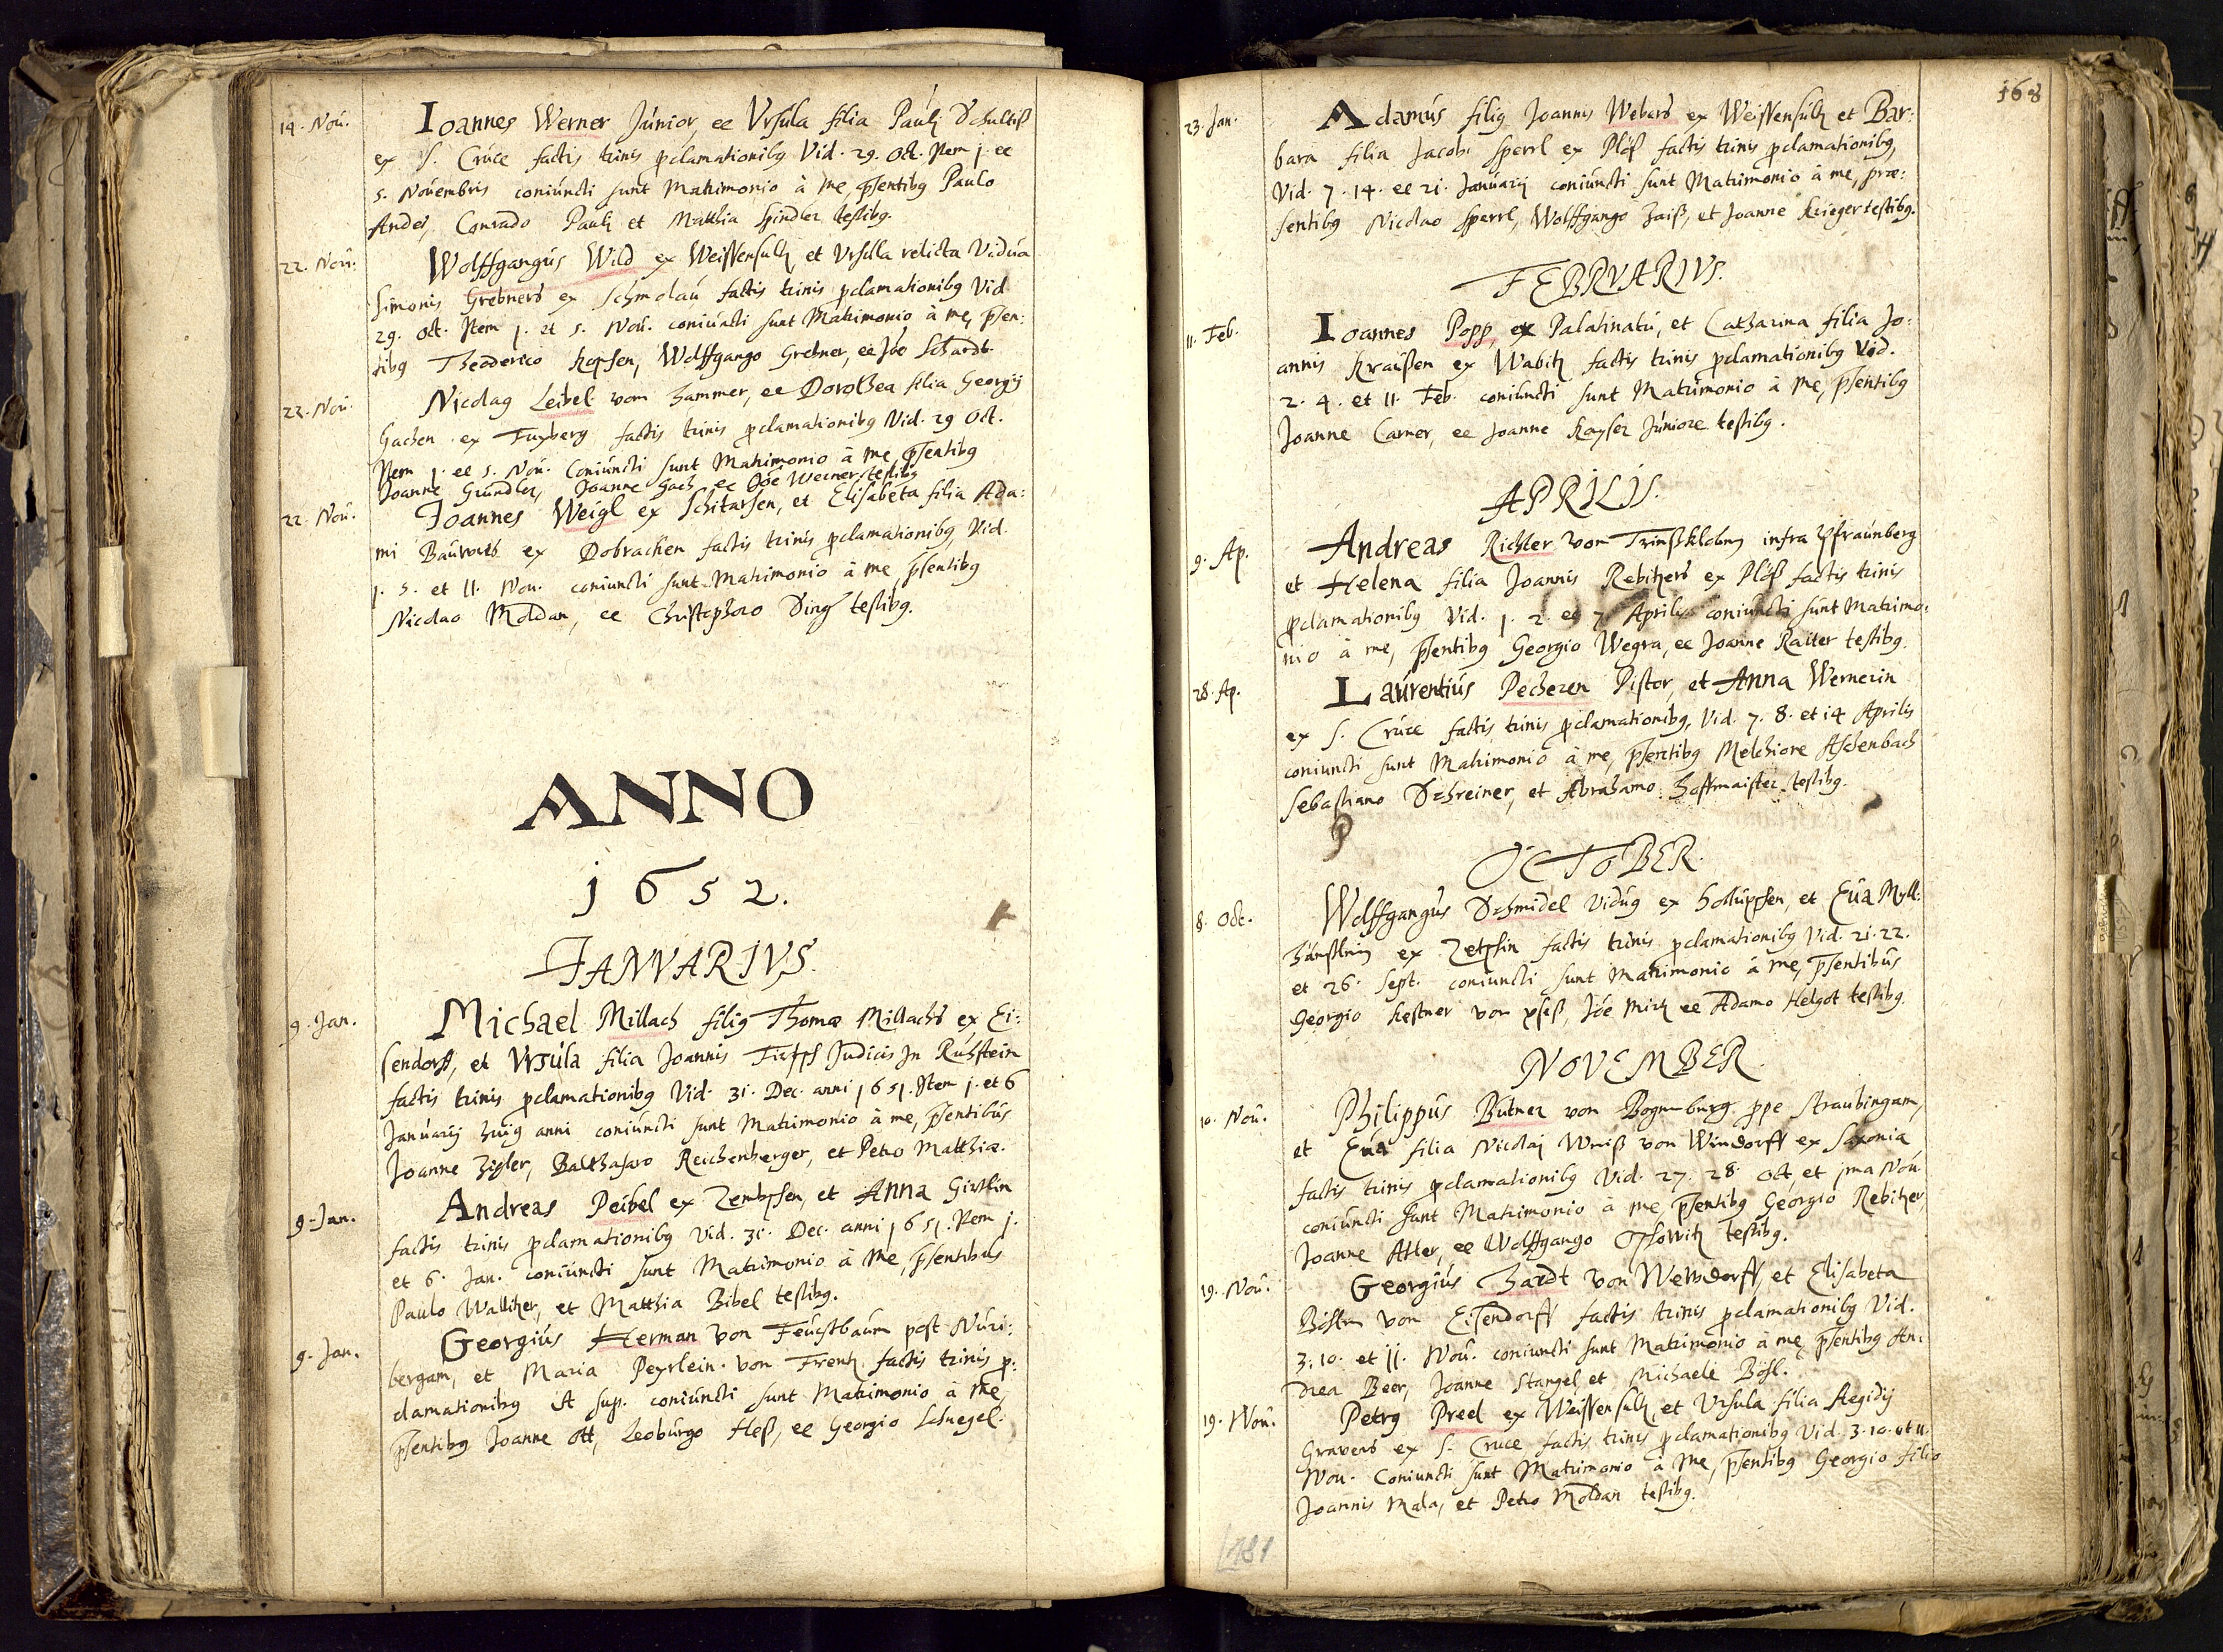 14. Nou. Ioannes Werner Júnior, ee Vrsúla filia Paúlj Schultiß
ex S. Crúce factis trinis pclamationibg Vid. 29. Oct. Item j. ee
5. Nouembris coniúncti sunt Matrimonio à me, psentibg Paulo
Andes, Conrado Paulj et Matthia Spindler testibg.
22. Nou. Wolffgangús Wild ex Weissensulz et Vrsúla relicta Vidúa
Simonis Grebners ex Schmolaú factis trinis pclamationibg Vid.
29. Oct. Item j. et 5. Noú. coniúncti sunt Matrimonio à me, psen:
tibg Theoderico Kopsen, Wolffgango Grebner, ee Jöe Schardt.
22. Nou. Nicolag Leibel vom Hammer, ee Dorothea filia Georgij
Gachen ex Fuxberg factis trinis pclamationibg Vid. 29 Oct.
Item j. ee 5. Noú. Coniúncti sunt Matrimonio à me psentibg
Joanne Gründler, Joanne Gach ee Jöe Werner testibg
22. Noú. Joannes Weigl ex Schitarsen, et Elisabeta filia Ada:
mi Baúrors ex Dobraken factis trinis pclamationibg, Vid.
j. 5. et 11. Nou. coniuncti sunt Matrimonio à me, psentibg
Nicolao Moldan, ee Christophoro Ding testibg.
ANNO
1652.
IANVARIVS.
9. Jan. Michael Millach filig Thomæ Millachs ex Ei:
sendorff, et Vrsúla filia Joannis Judicis Jn Ruhstein
factis trinis pclamationibg Vid. 31. Dec. anni 1651. Item j. et 6
Januarij huig anni coniúncti sunt Matrimonio à me, psentibús
Joanne Zigler, Balthasaro Reichenberger, et Petro Matthiæ.
9. Jan. Andreas Peibel ex Zembschen, et Anna Girtlin
factis trinis pclamationibg Vid. 31. Dec. anni 1651. Item j.
et 6. Jan. coniúncti sunt Matrimonio à me, psentibús
Paulo Wallitzer, et Matthia Bibel testibg.
9. Jan. Georgiús Herman von Feuchtbaúm post Núri:
bergam, et Maria Peyrlein von Frentz factis trinis p:
clamationibg vt sup. coniúncti sunt Matrimonio à me,
psentibg Joanne Ott, Leobúrgo Heß, ee Georgio Schnegel.
168
23. Jan. Adamús filig Joannis Webers ex Weissensúlz et Bar:
bara filia Jacobi Sperrl ex Plöß factis trinis pclamationibg,
Vid. 7. 14. ee 21. Januarij coniúncti sunt Matrimonio à me, præ:
sentibg Nicolao Sperrl, Wolffgango Zaiß, et Joanne Krieger testibg.
FEBRVARIVS.
11. Feb. Ioannes Popp, ex Palatinatú, et Catharina filia Jo:
annis Kraüßen ex Wabitz factis trinis pclamationibg Vid.
2. 4. et 11. Feb. coniúncti sunt Matrimonio à me, psentibg
Joanne Carner, ee Joanne Kayser Júniore testibg.
APRILIS.
9. Ap. Andreas Richter von infra Pfraúnberg
et Helena filia Joannis Rebitzers ex Plöß factis trinis
pclamationibg Vid. j. 2. et 7 Aprilis coniuncti súnt Matrimo:
nio à me, psentibg Georgio Wegra, ee Joanne Raiter testibg.
28. Ap. Laúrentiús Pecheren Pistor, et Anna Wernerin
ex S. Crúce factis trinis pclamationibg, Vid. 7. 8. et 14 Aprilis
coniuncti sunt Matrimonio à me, psentibg Melchiore Aschenbach
Sebastiano Schreiner, et Abrahamo Hoffmaister testibg.
OCTOBER.
8. Oct. Wolffgangús Schmidel Vidúg ex Hollúpsen, et Eúa Mÿll:
ex Zetschin factis trinis pclamationibg Vid. 21. 22.
et 26. Sept. coniuncti sunt Matrimonio à me, psentibús
Georgio Kestner von, Jöe Mirk ee Adamo Helgot testibg.
NOVEMBER.
10. Noú. Philippús Bütner von Bognburg ppe Straubingam,
et Eúa filia Nicolaj Wniß von Windorff ex Saxonia
factis trinis pclamationibg Vid. 27. 28. Oct. et jma Noú
coniúncti sunt Matrimonio à me, psentibg Georgio Rebitzer,
Joanne Atter, ee Wolffgango testibg.
19. Noú. Georgiús Hardt von Weltzdorff, et Elisabeta
Böstn von Eisendorff factis trinis pclamationibg Vid.
3. 10. et 11. Noú. coniuncti sunt Matrimonio à me, psentibg An:
drea Beer, Joanne Stangel et Michaele Bösl.
19. Noú. Petrg Preel ex Weissensulz, et Vrsula filia Aegidij
Gravers ex S. Cruce factis trinis pclamationibg Vid. 3. 10. et 11.
Nou. Coniuncti sunt Matrimonio à me, psentibg Georgio filio
Joannis Mala, et Petro Moldan testibg.